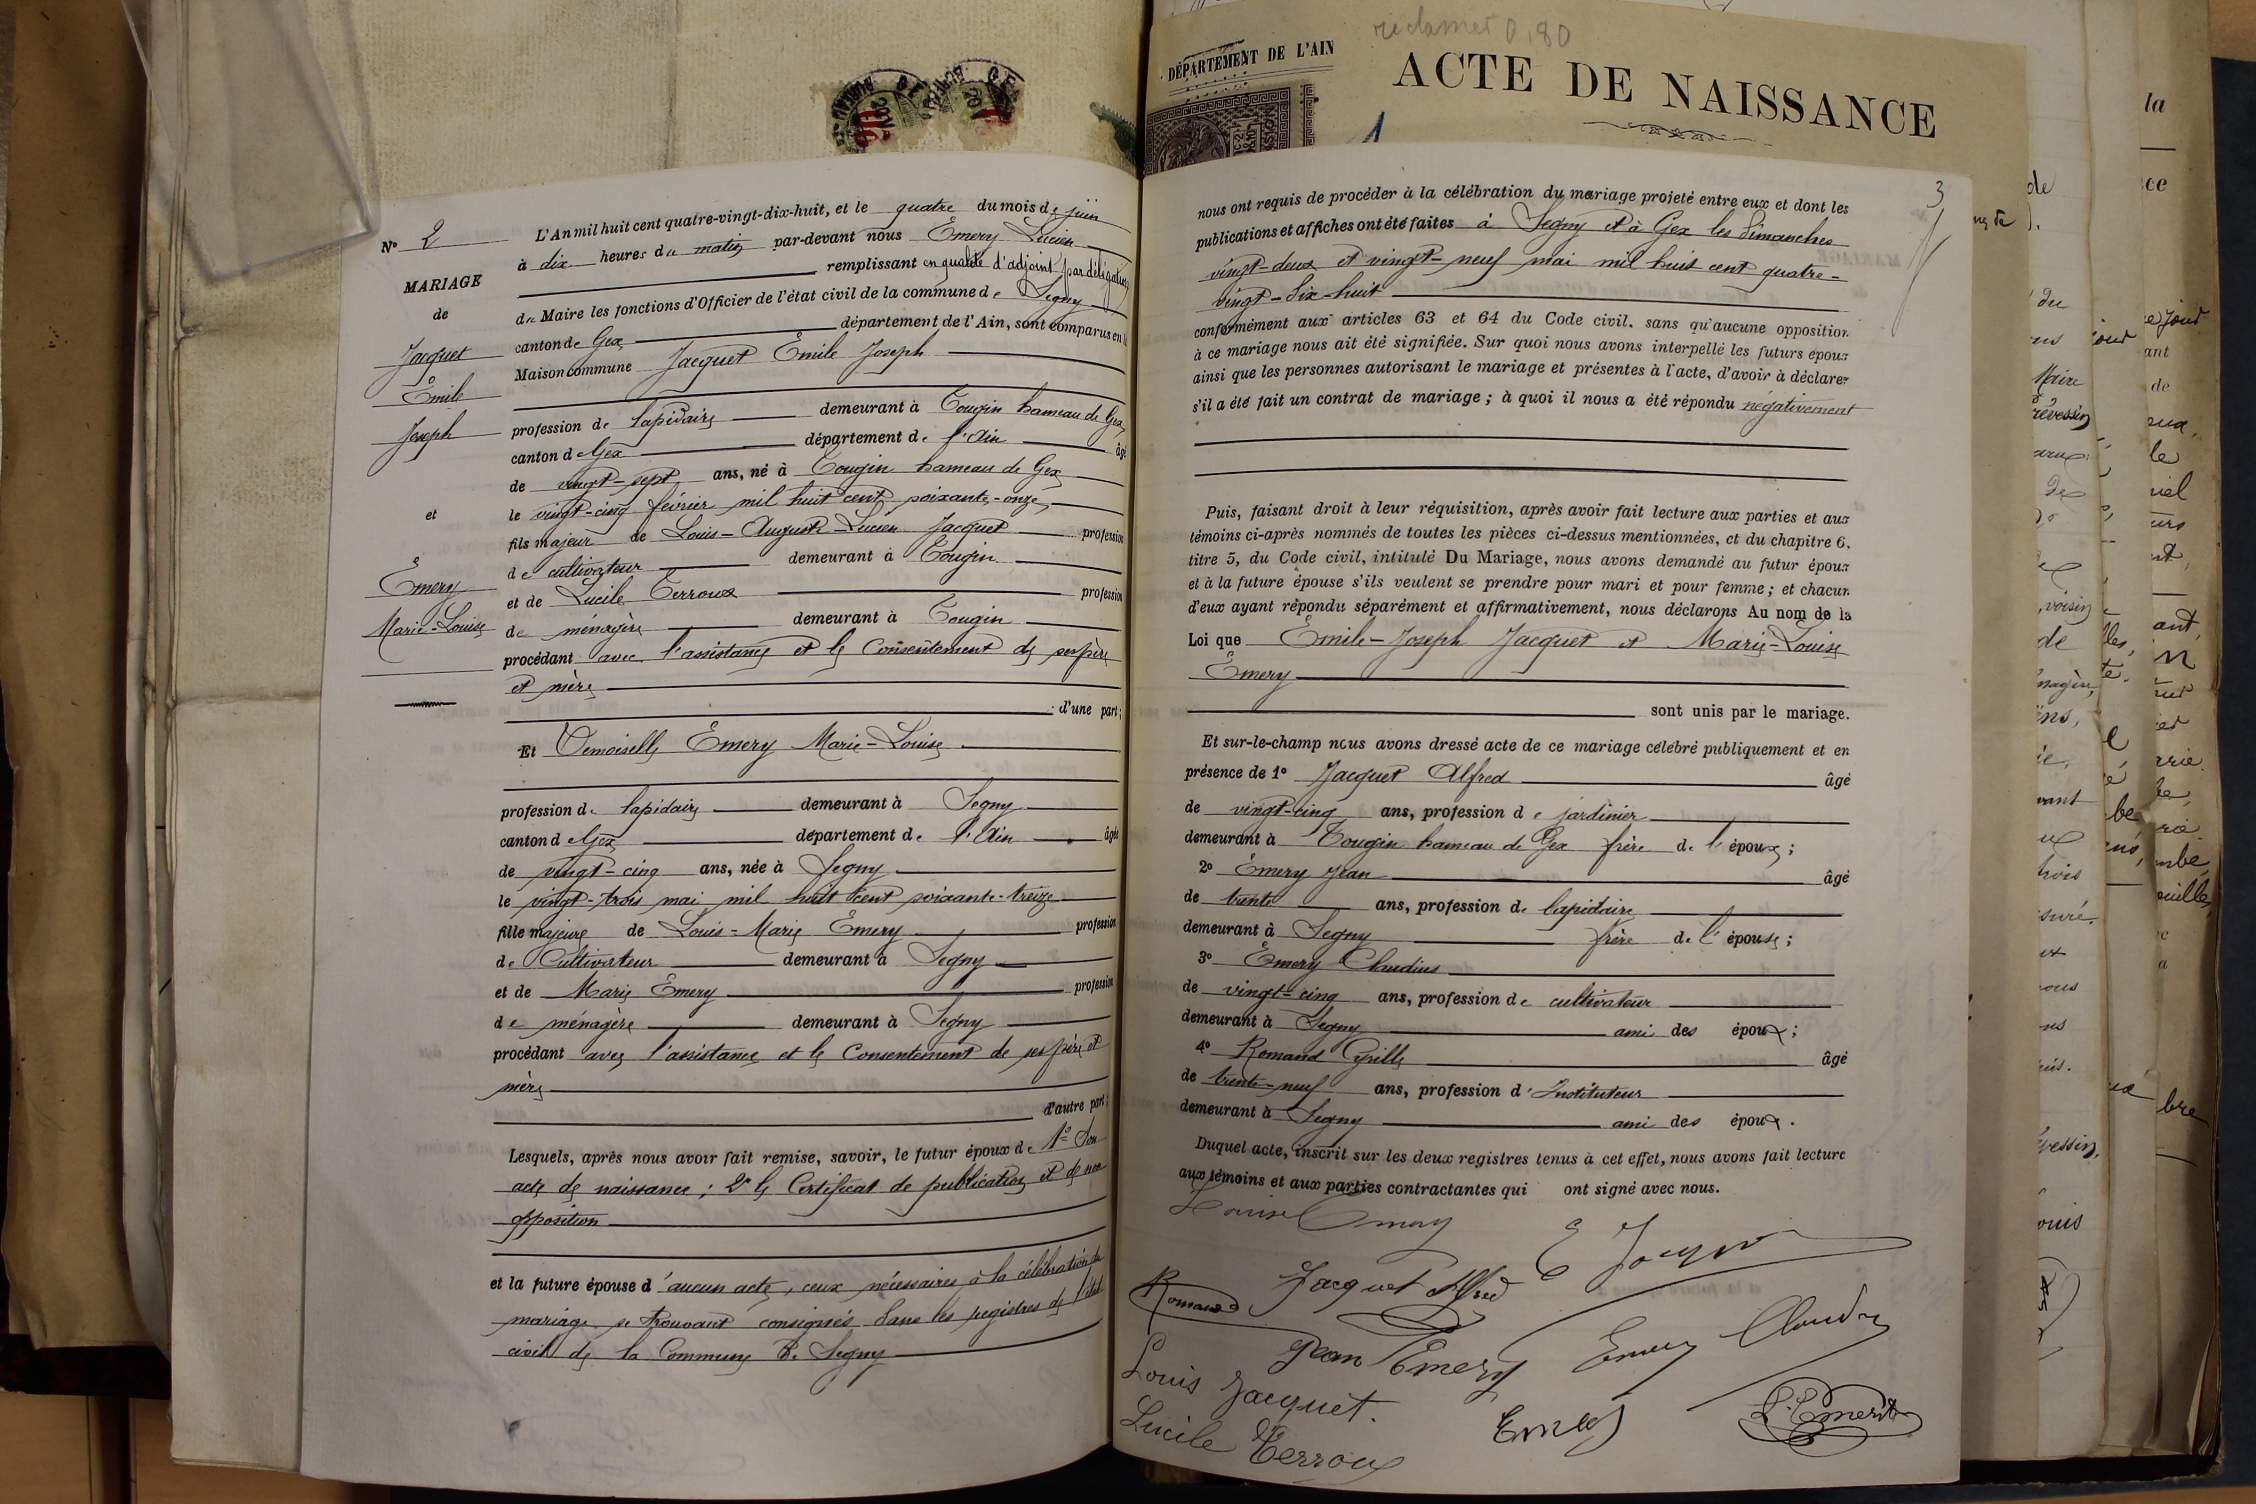 réclamer 0,80
DÉPARTEMENT DE L'AIN
ACTE DE NAISSANCE
N° 2
MARIAGE
de
Jacquet
Émile
Joseph
et
Émery
Marie-Louise
L'An mil huit cent quatre-vingt-dix-huit, et le quatre du mois de juin
à dix heures du matin par-devant nous Émery Lucien
remplissant en qualité d'adjoint par délégation
du Maire les fonctions d'Officier de l'état civil de la commune de Segny
canton de Gex département de l'Ain, sont comparus en la
Maison commune Jacquet Émile Joseph
profession de lapidaire demeurant à Tougin hameau de Gex
canton de Gex département de l'Ain âgé
de vingt-sept ans, né à Tougin hameau de Gex
le vingt-cinq février mil huit cent soixante-onze
fils majeur de Louis-Auguste-Lucien Jacquet profession
de cultivateur demeurant à Tougin
et de Lucile Terroux profession
de ménagère demeurant à Tougin
procédant avec l'assistance et le consentement de ses père
et mère
d'une part;
Et Demoiselle Émery Marie-Louise
profession de lapidaire demeurant à Segny
canton de Gex département de l'Ain âgée
de vingt-cinq ans, née à Segny
le vingt-trois mai mil huit cent soixante-treize
fille majeure de Louis-Marie Émery profession
de Cultivateur demeurant à Segny
et de Marie Émery profession
de ménagère demeurant à Segny
procédant avec l'assistance et le consentement de ses père et
mère
d'autre part;
Lesquels, après nous avoir fait remise, savoir, le futur époux de 1° Son
acte de naissance; 2° le Certificat de publication et de non
opposition
et la future épouse d'aucun acte, ceux nécessaires à la célébration du
mariage se trouvant consignés dans les registres de l'état
civil de la Commune de Segny
3
nous ont requis de procéder à la célébration du mariage projeté entre eux et dont les
publications et affiches ont été faites à Segny et à Gex les dimanches
vingt-deux et vingt-neuf mai mil huit cent quatre-
vingt-dix-huit
conformément aux articles 63 et 64 du Code civil. sans qu'aucune opposition
à ce mariage nous ait été signifiée. Sur quoi nous avons interpellé les futurs époux
ainsi que les personnes autorisant le mariage et présentes à l'acte, d'avoir à déclarer
s'il a été fait un contrat de mariage; à quoi il nous a été répondu négativement
Puis, faisant droit à leur réquisition, après avoir fait lecture aux parties et aux
témoins ci-après nommés de toutes les pièces ci-dessus mentionnées, et du chapitre 6,
titre 5, du Code civil, intitulé Du Mariage, nous avons demandé au futur époux
et à la future épouse s'ils veulent se prendre pour mari et pour femme; et chacun
d'eux ayant répondu séparément et affirmativement, nous déclarons Au nom de la
Loi que Émile-Joseph Jacquet et Marie-Louise
Émery
sont unis par le mariage.
Et sur-le-champ nous avons dressé acte de ce mariage célébré publiquement et en
présence de 1° Jacquet Alfred âgé
de vingt-cinq ans, profession de jardinier
demeurant à Tougin hameau de Gex frère de l'époux;
2° Émery Jean âgé
de trente ans, profession de lapidaire
demeurant à Segny frère de l'épouse;
3° Émery Claudius
de vingt-cinq ans, profession de cultivateur
demeurant à Segny ami des époux;
4° Romand Cyrille âgé
de trente-neuf ans, profession d'Instituteur
demeurant à Segny ami des époux.
Duquel acte, inscrit sur les deux registres tenus à cet effet, nous avons fait lecture
aux témoins et aux parties contractantes qui ont signé avec nous.
Louise Emery
E Jacquet
Jacquet Alfred
Romand
Jean Émery
Emery Claudius
Louis Jacquet.
Emery
L. Emery
Lucile Terroux